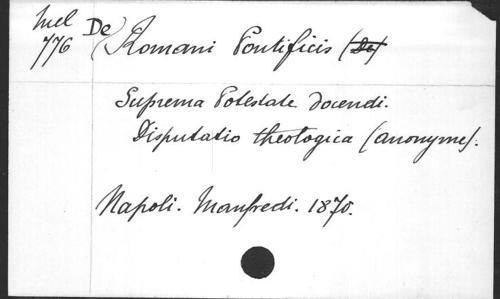 Mel De Romani Pontificis (De)
776
Suprema Potestate docendi.
Disputatio theologica (anonyme).
Napoli. Manfredi. 1870.